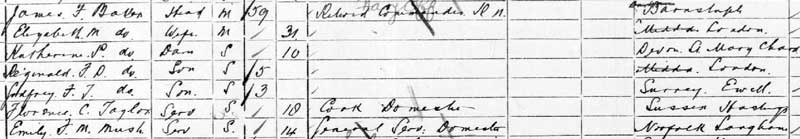 James. F. Baker Head M 59 Retired Commander R.N. Barnstaple
Elizabeth M do Wife M 31 Middx London
Katherine. P. do Daur S 10 Devon St Mary Church
Reginald. F. D. do Son S 5 Middx London.
Godfrey. F. T. do Son. S. 3 Surrey Ewell.
Florence. C. Taylor Serv S. 18 Cook Domestic Sussex Hastings
Emily. F. M. Mush Serv S. 14 General Serv: Domestic Norfolk Langham